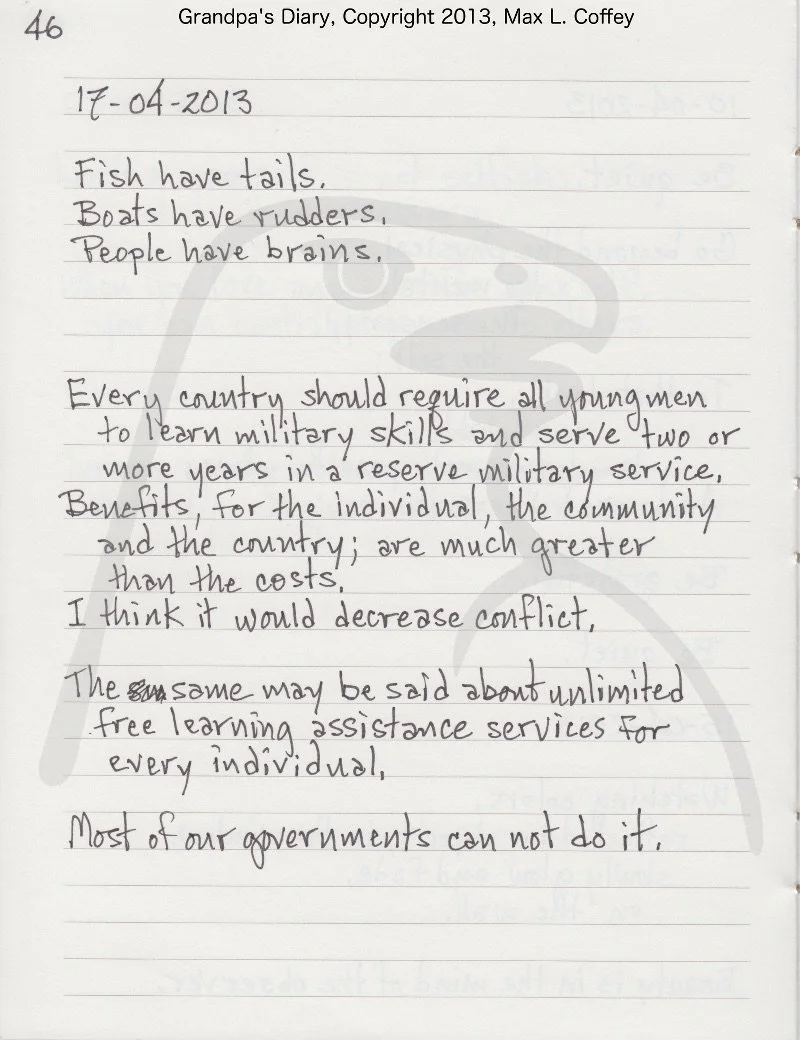 46
Grandpa's Diary, Copyright 2013, Max L. Coffey
17-04-2013
Fish have tails.
Boats have rudders.
People have brains.
Every country should require all young men
to learn military skills and serve two or
more years in a reserve military service.
Benefits, for the individual, the community
and the country; are much greater
than the costs.
I think it would decrease conflict.
The same may be said about unlimited
free learning assistance services for
every individual.
Most of our governments can not do it.